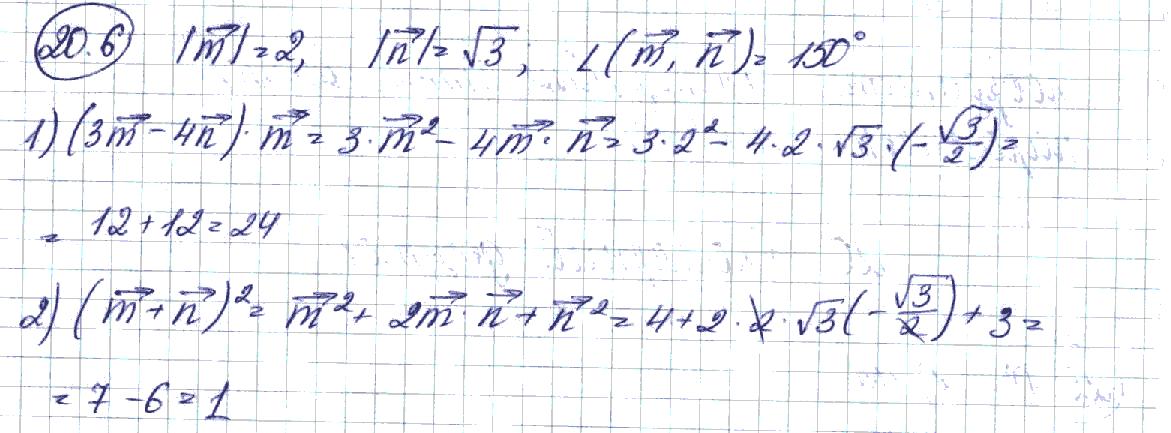 20.6 |m⃗|=2, |n⃗|=√3; ∠(m⃗, n⃗)=150°
1) (3m⃗-4n⃗)·m⃗=3·m⃗²-4m⃗·n⃗=3·2²-4·2·√3·(-√3/2)=
= 12+12=24
2) (m⃗+n⃗)²=m⃗²+2m⃗·n⃗+n⃗²=4+2·2·√3(-√3/2)+3=
=7-6=1